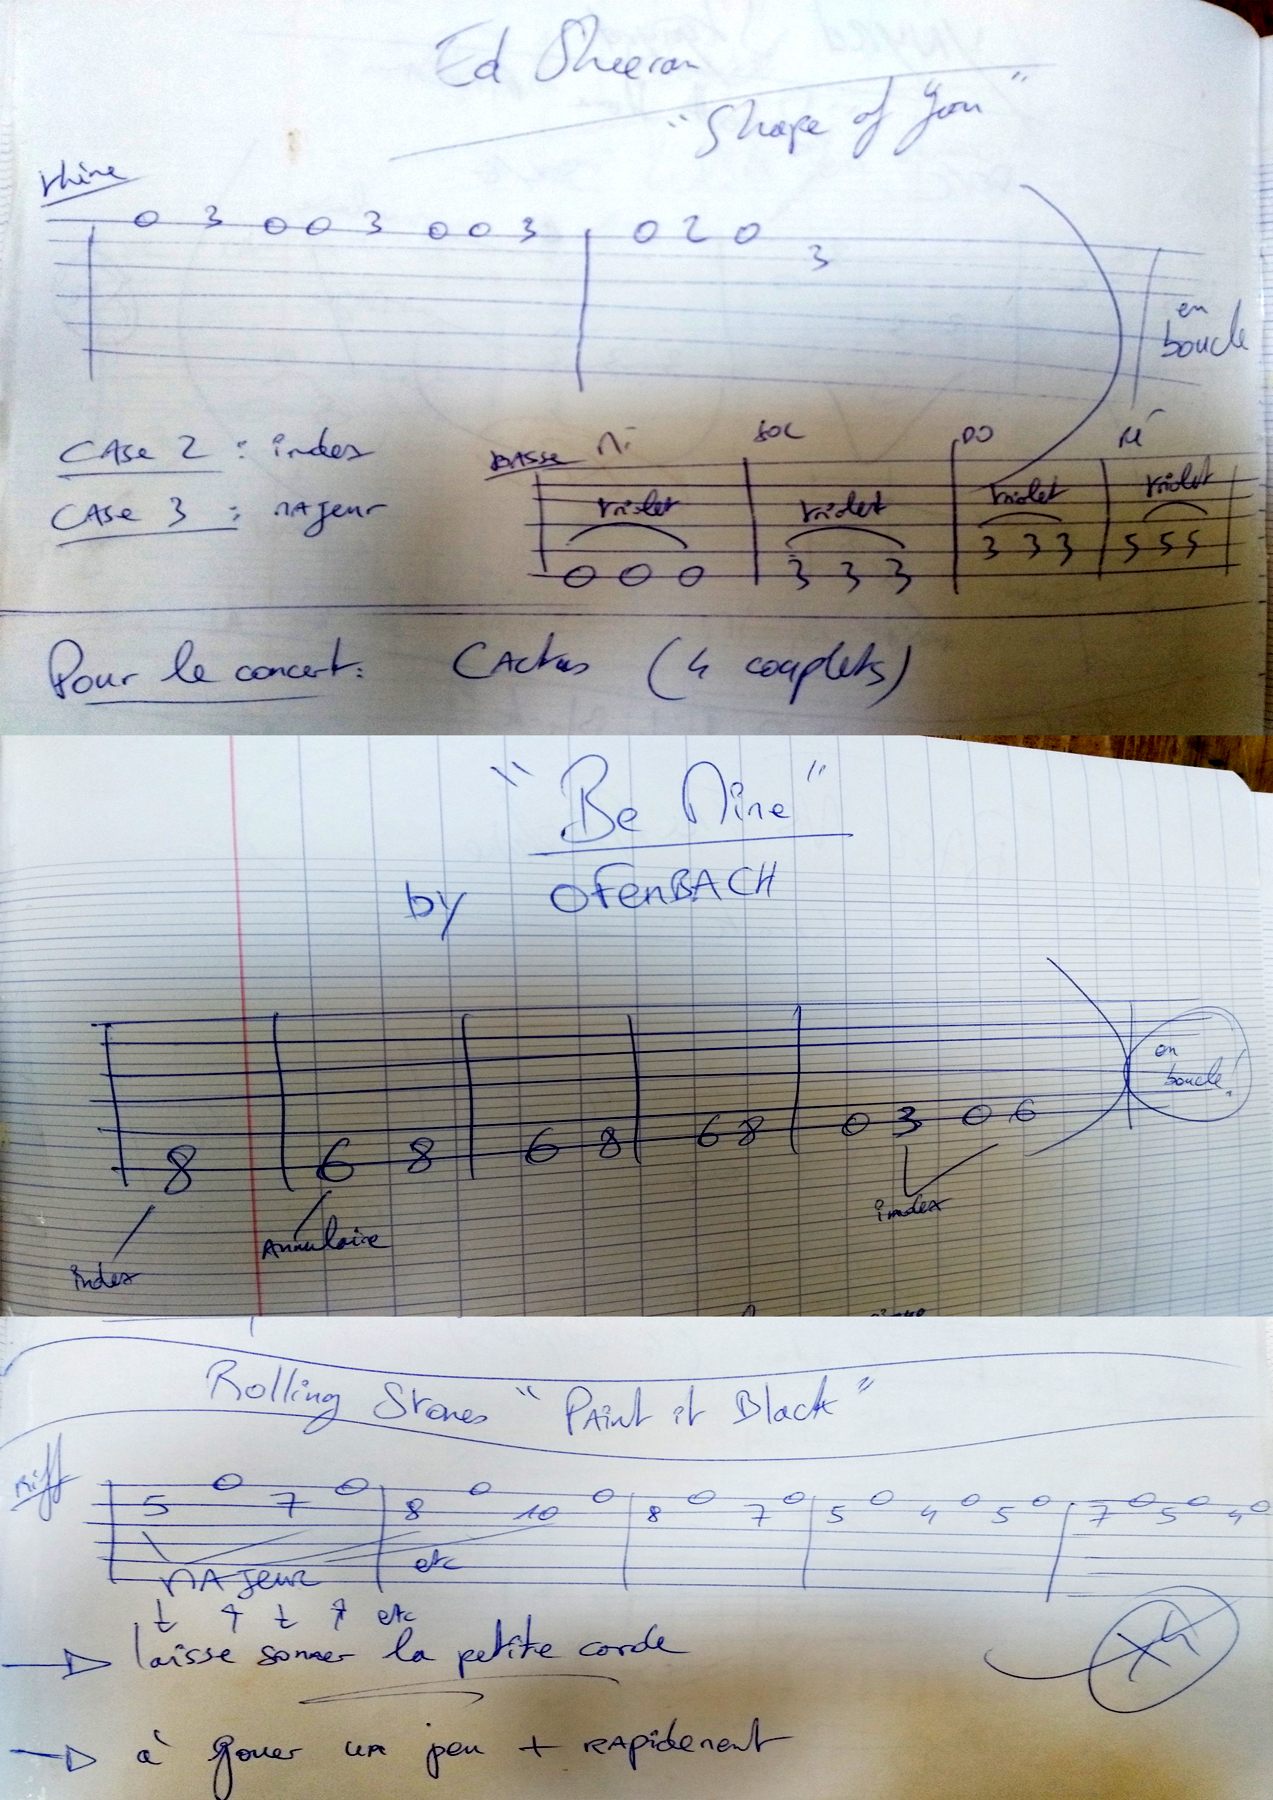 Ed Sheeran
"Shape of You"
thème
0 3 0 0 3 0 0 3 0 2 0 3
en
boucle
CASE 2 : index
CASE 3 : MAJeur
BASSE Mi SOL DO Ré
triolet triolet triolet triolet
0 0 0 3 3 3 3 3 3 5 5 5
Pour le concert: CActus (4 couplets)
"Be Mine"
by OFenBACH
en
boucle!
8 6 8 6 8 6 8 0 3 0 6
index
Annulaire
index
Rolling Stones "PAint it Black"
Riff
5 0 7 0 8 0 10 0 8 0 7 0 5 0 4 0 5 0 7 0 5 0 4 0
MAJeur
etc
etc
x4
laisse sonner la petite corde
à jouer un peu + RApidement